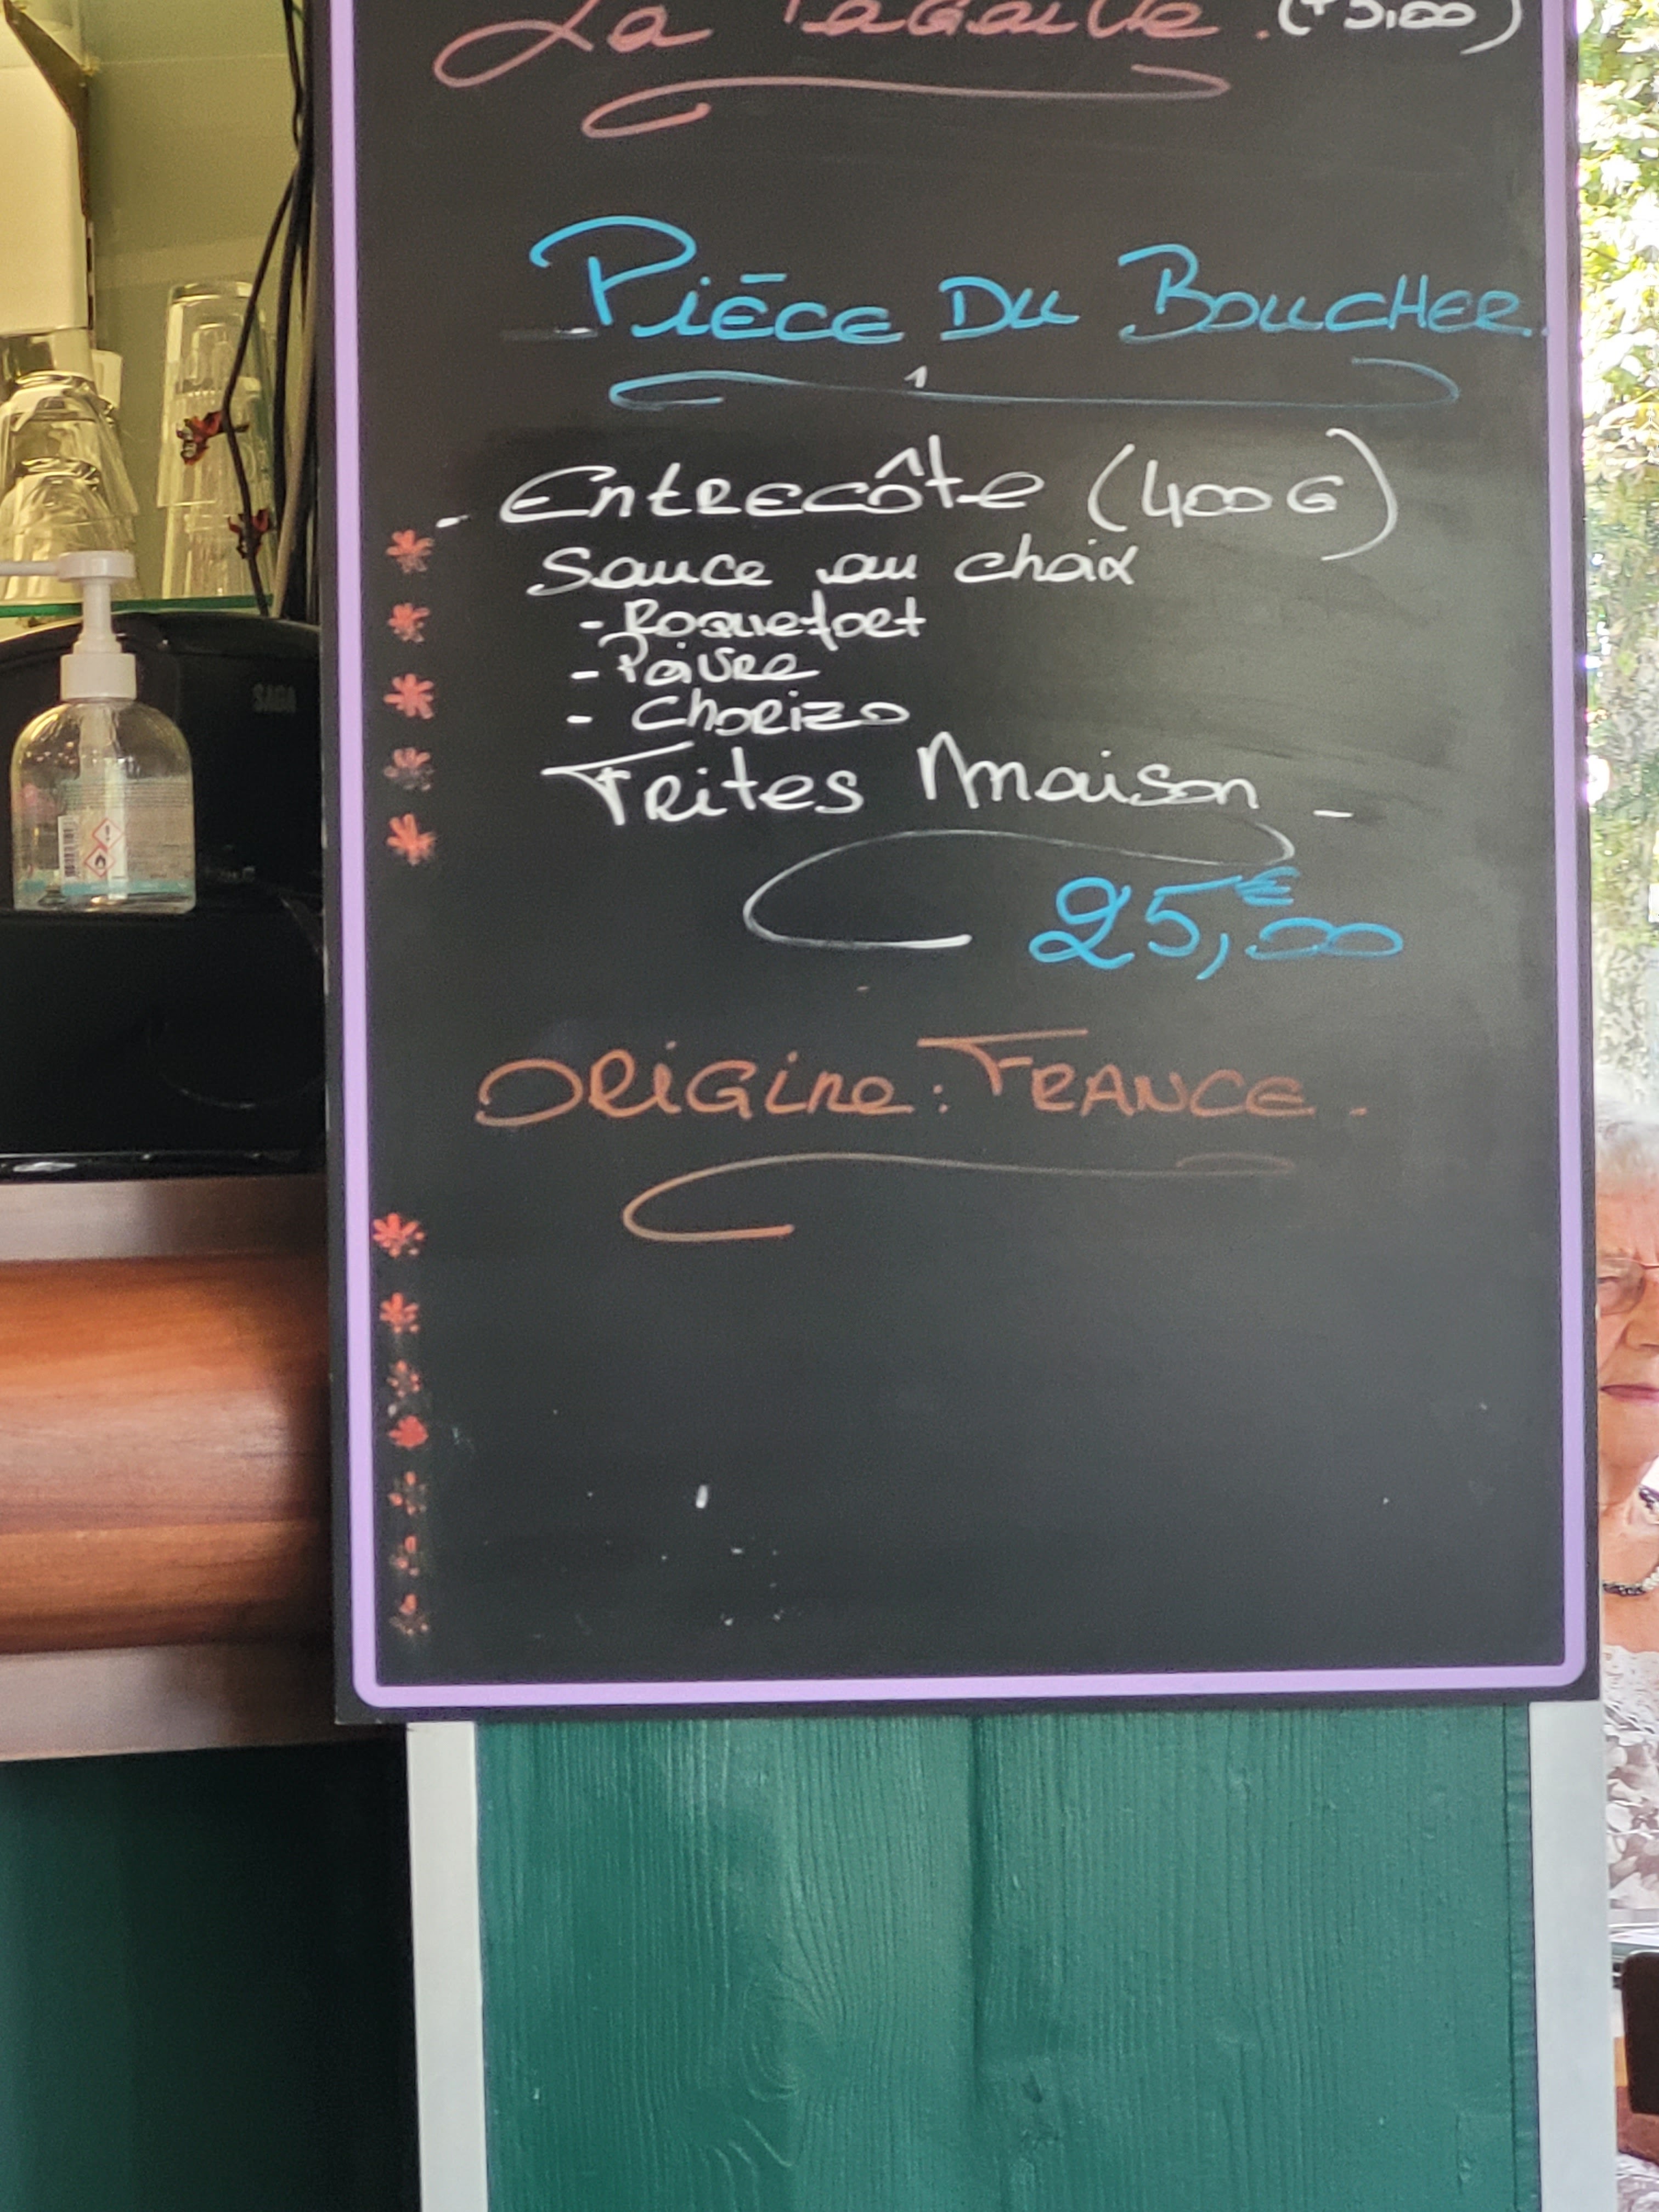 La Pagaille. (+5,00)
PIÈCE DU BOUCHER.
- ENTRECÔTE (400G)
Sauce au choix
- Roquefort
- Poivre
- Chorizo
Frites Maison -
25,00€
ORIGINE: FRANCE.
SAGA